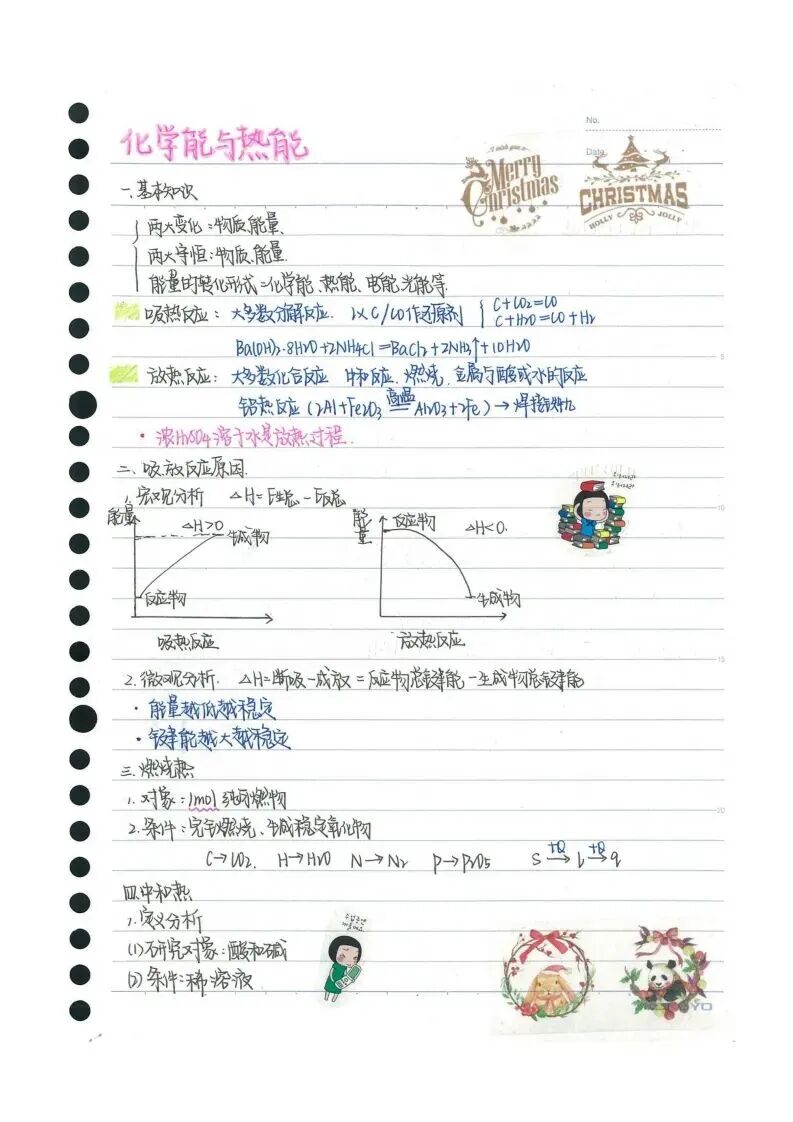 No.
Date
化学能与热能
I wish you a
Merry Christmas
CHRISTMAS
HOLLY JOLLY
一.基本知识
两大变化:物质.能量.
两大守恒:物质.能量.
能量的转化形式=化学能、热能、电能、光能等.
吸热反应: 大多数分解反应. 以C/CO作还原剂 C+CO2=CO
C+H2O=CO+H2
5
Ba(OH)2·8H2O+2NH4Cl=BaCl2+2NH3↑+10H2O
放热反应: 大多数化合反应 中和反应. 燃烧. 金属与酸或水的反应
铝热反应(2Al+Fe2O3 高温 Al2O3+2Fe)→焊接铁轨
·浓H2SO4溶于水是放热过程.
二.吸.放反应原因.
10
1.宏观分析 △H=E生总-E反总
能量 △H>0 生成物 反应物 吸热反应
能量 反应物 △H<0. 生成物 放热反应
15
2.微观分析. △H=断吸-成放=反应物总键能-生成物总键能
·能量越低越稳定
·键能越大越稳定
三.燃烧热
1.对象:1mol纯可燃物
20
2.条件:完全燃烧、生成稳定氧化物
C→CO2. H→H2O N→N2 P→P2O5 S +Q→ l +Q→ g
四.中和热
1.定义分析
(1)研究对象:酸和碱
(2)条件:稀溶液